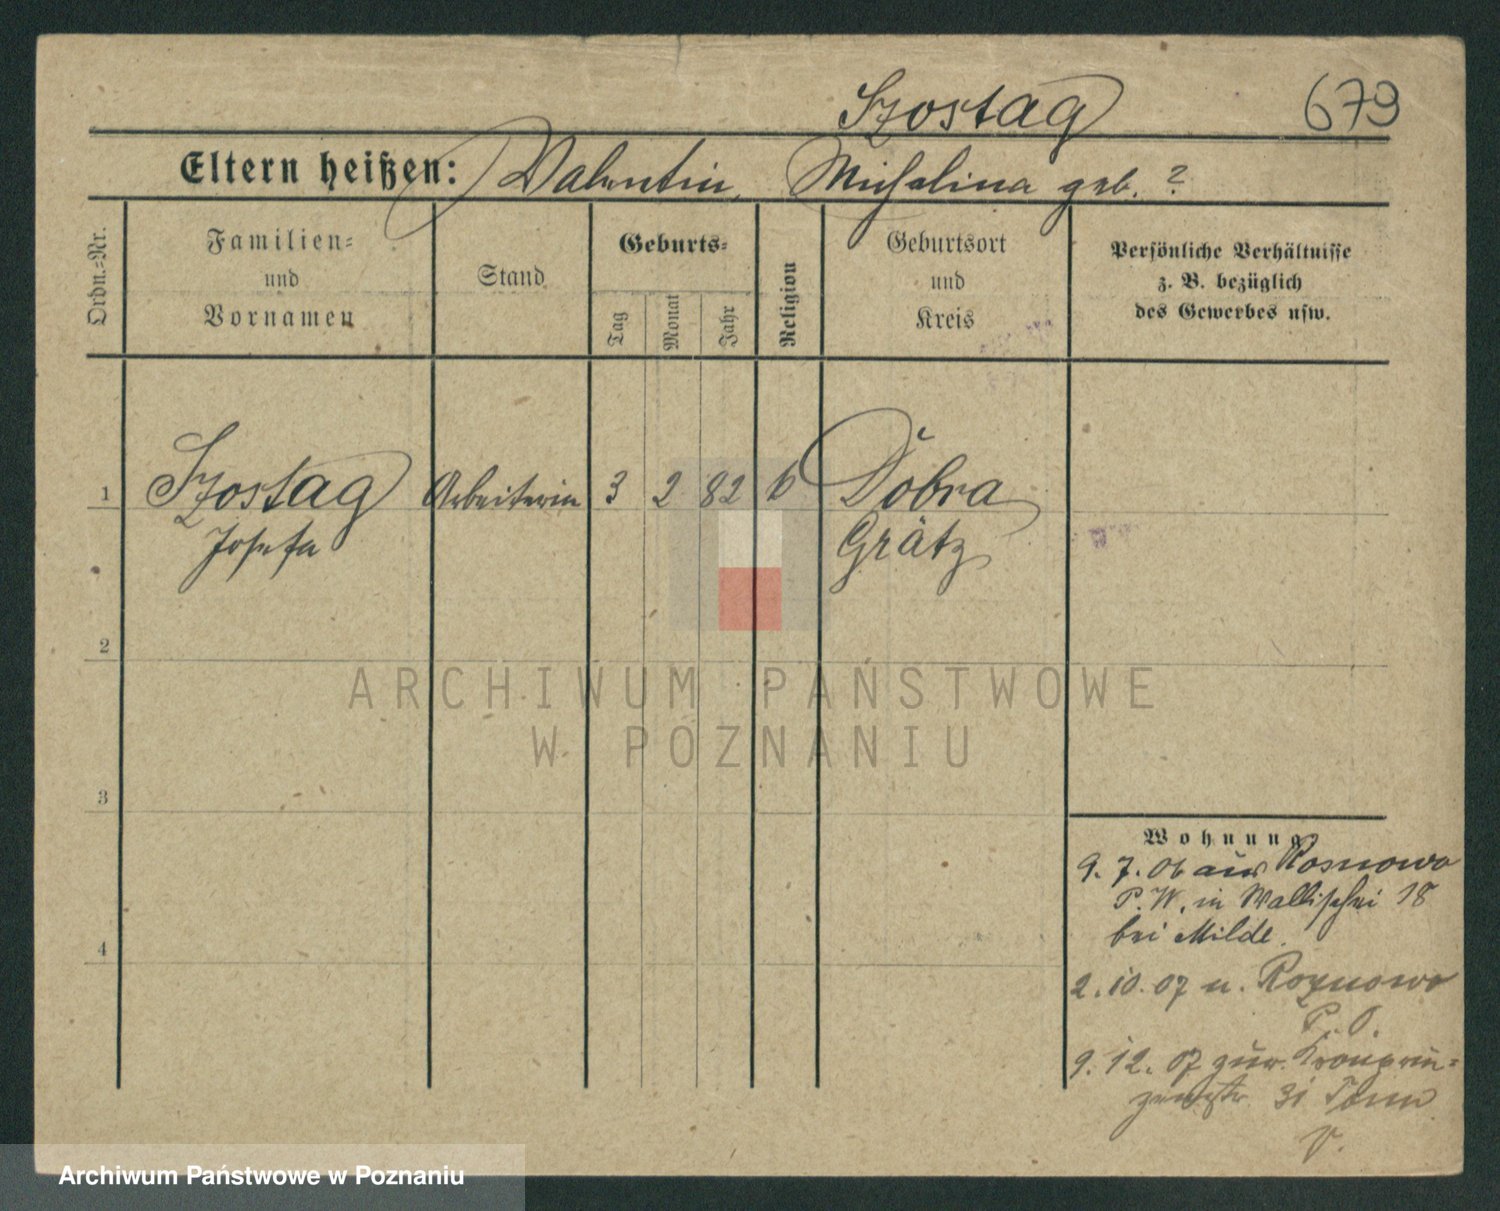 Szostag 679
Eltern heißen: Valentin, Michalina geb. ?
Ordn.-Nr.
Familien-
und
Vornamen
Stand
Geburts-
Tag
Monat
Jahr
Religion
Geburtsort
und
Kreis
Persönliche Verhältnisse
z. B. bezüglich
des Gewerbes usw.
1 Szostag Arbeiterin 3 2 82 k Dobra
Josefa Grätz
2
3
4
Wohnung
9. 7. 06 aus Rosnowo
P. W. in Wallischei 18
bei Milde.
2. 10. 07 n. Roznowo
P. O.
9. 12. 07 zur. Kronprin-
zenstr 31
ARCHIWUM PAŃSTWOWE
W POZNANIU
Archiwum Państwowe w Poznaniu